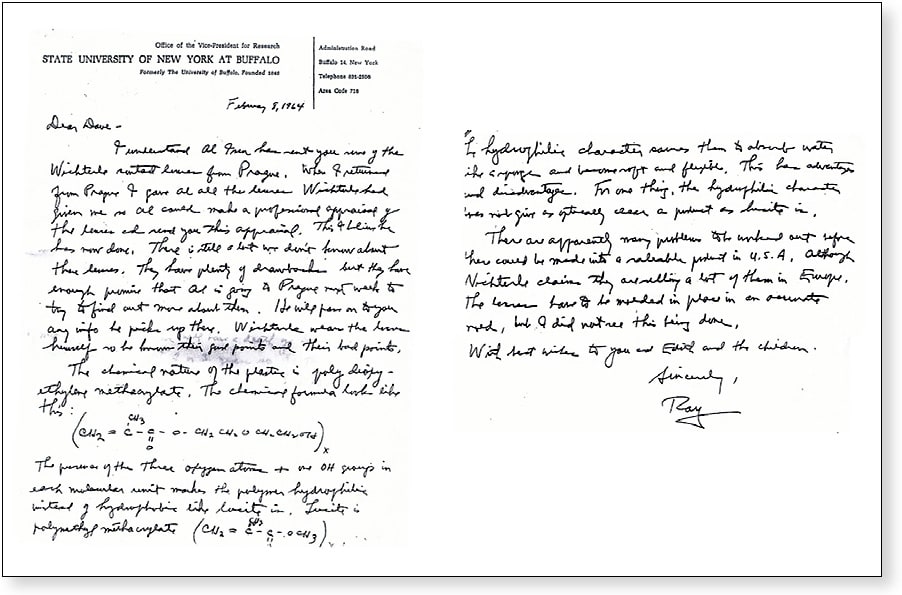 Office of the Vice-President for Research
STATE UNIVERSITY OF NEW YORK AT BUFFALO
Formerly The University of Buffalo, Founded 1846
Administration Road
Buffalo 14, New York
Telephone 831-2506
Area Code 716
February 8, 1964
Dear Dave -
I understand Al has sent you some of the
Wichterle contact lenses from Prague. When I returned
from Prague I gave Al all the lenses Wichterle had
given me so Al could make a professional appraisal of
the lenses and send you this appraisal. This I believe he
has now done. There is still a lot we don't know about
these lenses. They have plenty of drawbacks but they have
enough promise that Al is going to Prague next week to
try to find out more about them. He will pass on to you
any info he picks up there. Wichterle wears the lenses
himself so he knows their good points and their bad points.
The chemical nature of the plastic is poly
ethylene methacrylate. The chemical formula looks like
this:
(CH2 = C - C - O - CH2 CH2 O CH2 CH2 OH)x
CH3
O
The presence of the three oxygen atoms + one OH group in
each molecular unit makes the polymer hydrophilic
instead of hydrophobic like lucite is. Lucite is
polymethyl methacrylate (CH2 = C - C - OCH3)
CH3
hydrophilic character causes them to absorb water
like a sponge and become soft and flexible. This has advantages
and disadvantages. For one thing, the hydrophilic character
does not give as optically clear a product as lucite is.
There are apparently many problems to be worked out before
these could be made into a saleable product in U.S.A. Although
Wichterle claims they are selling a lot of them in Europe.
The lenses have to be molded in place in an accurate
mold, but I did not see this being done.
With best wishes to you and Edith and the children.
Sincerely,
Ray